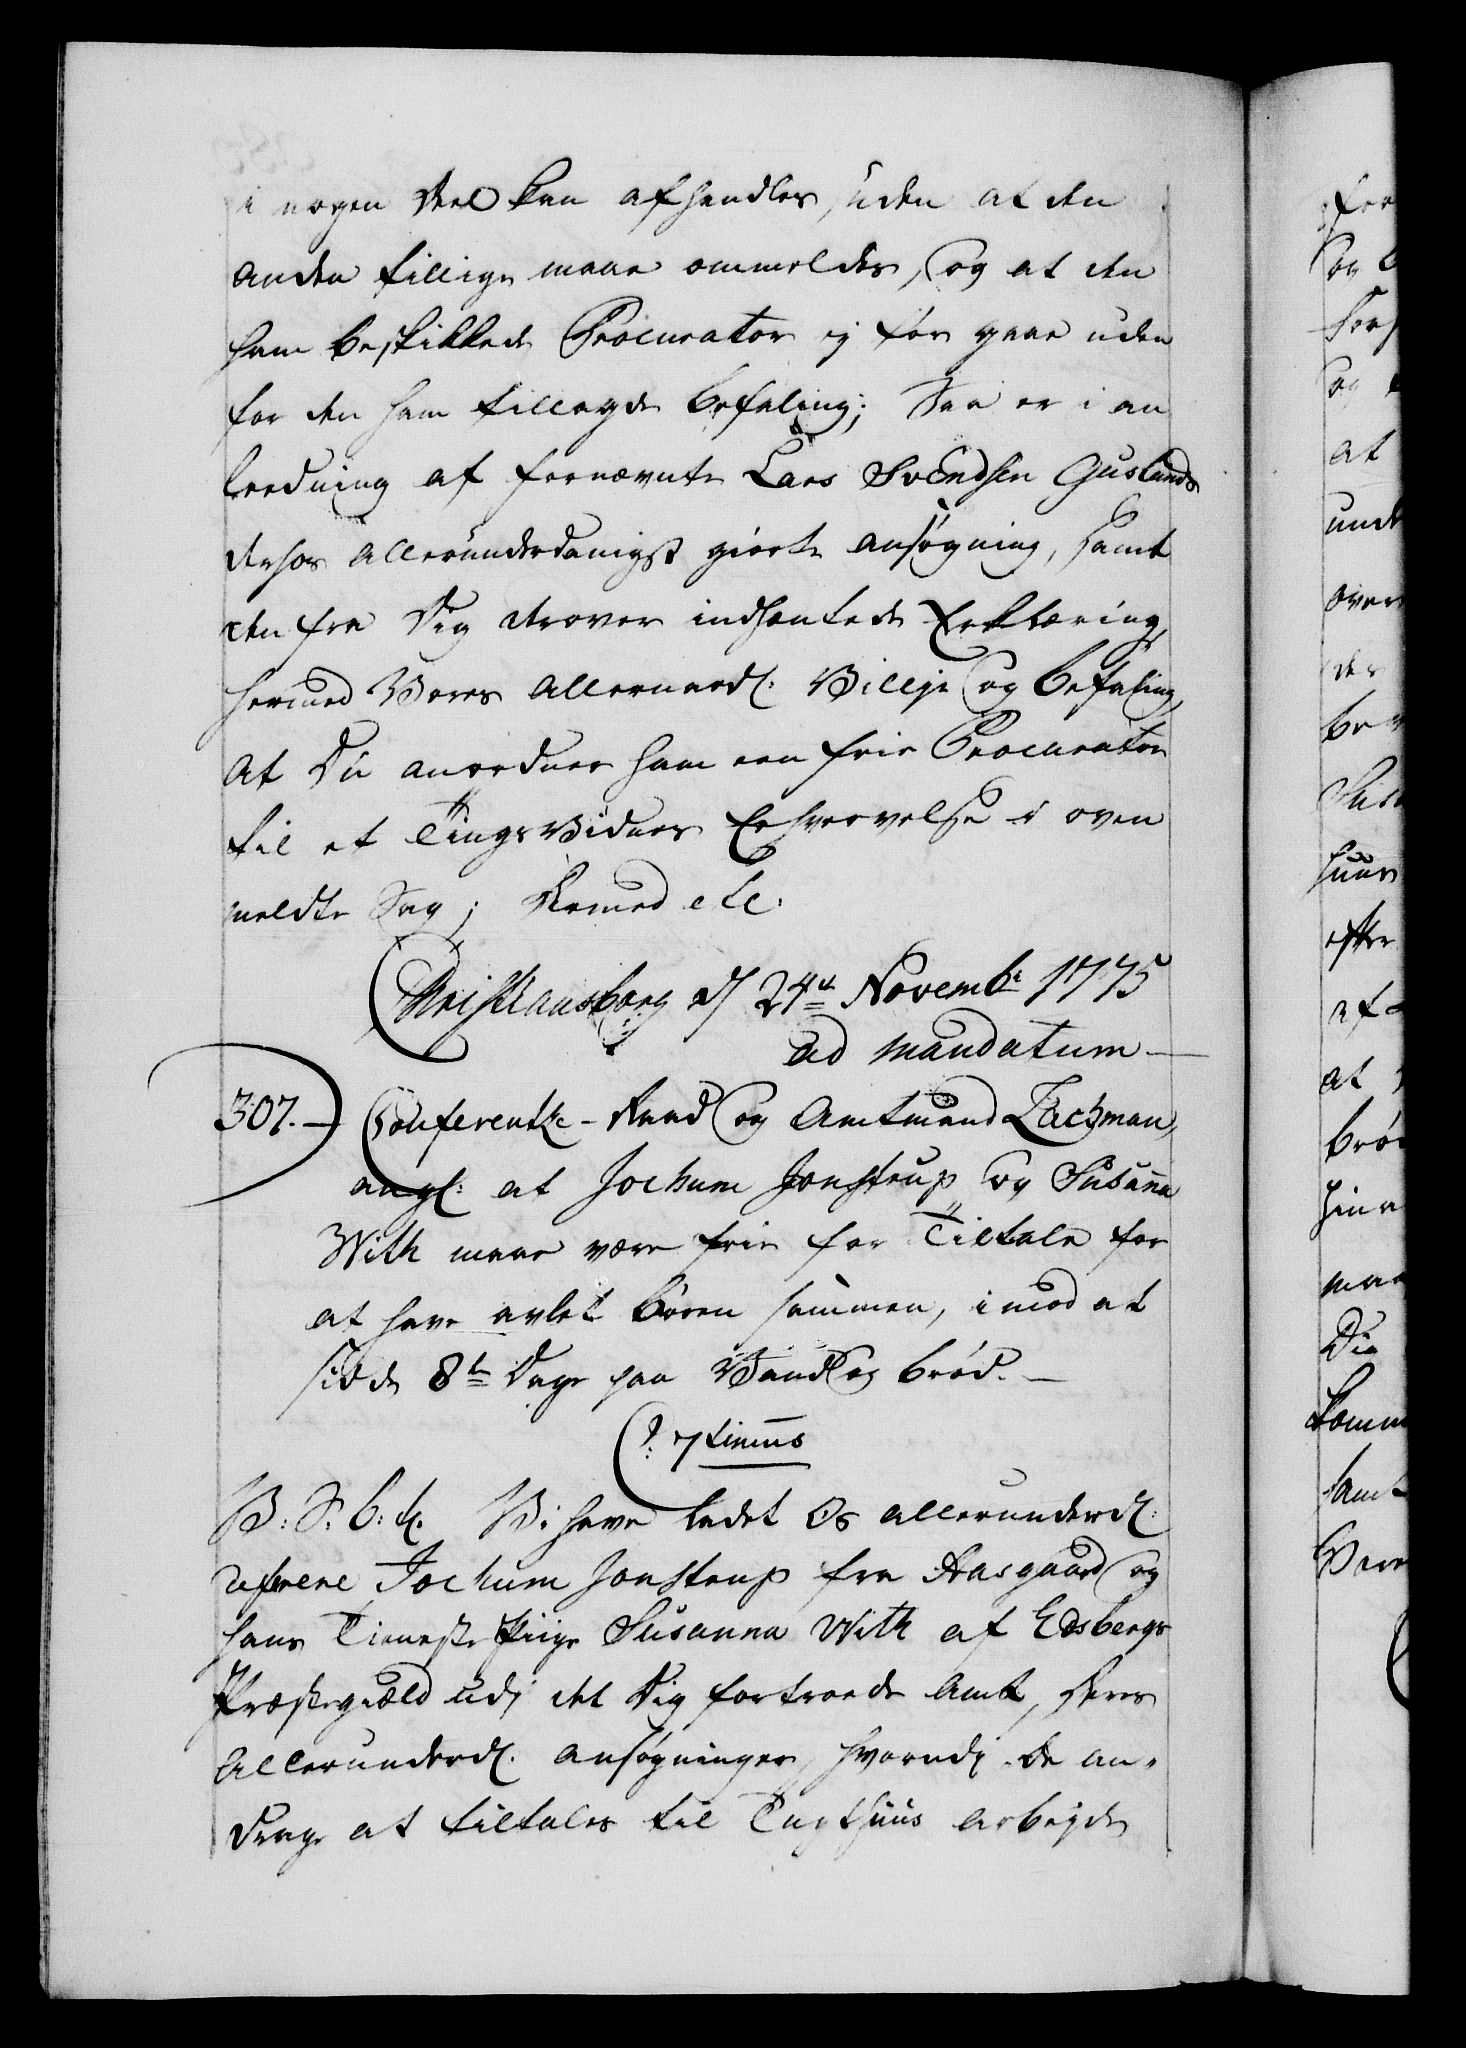 i nogen Deel kan afhandles, uden at den
anden tillige maae ommeldes, og at den
ham beskikkede Procurator ej tør gaae uden
for den ham tillagde befaling; Saa er i an
leedning af fornævnte Lars Svendsen Guslunds
derhos allerunderdanigst giorte ansøgning, samt
den fra Dig derover indhentede Erklæring,
hermed Vores allernaadl: Villje og befaling,
at Du anordner ham een frie Procurator
til et TingsVidnes Erhvervelse i oven
meldte Sag; Dermed etc.
Christiansborg d 24de Novembr 1775
ad mandatum
307. Conferentz-Raad og Amtmand Lachman,
angl: at Jochum Jonstrup og Susanna
With maae være frie for Tiltale for
at have avlet børen sammen, imod at
sidde 8te Dage paa Vand og brød.
V: S: b: t. Vi have ladet Os allerunderdl:
referere Jochum Jonstrup fra Aasgaard og
hans Tieneste Piige Susanna With af Edsbergs
Præstegiæld udj det Dig fortroede Amt, deres
allerunderdl. ansøgninger, hvorudj De an-
drage at tiltales til Tugthuus arbejde